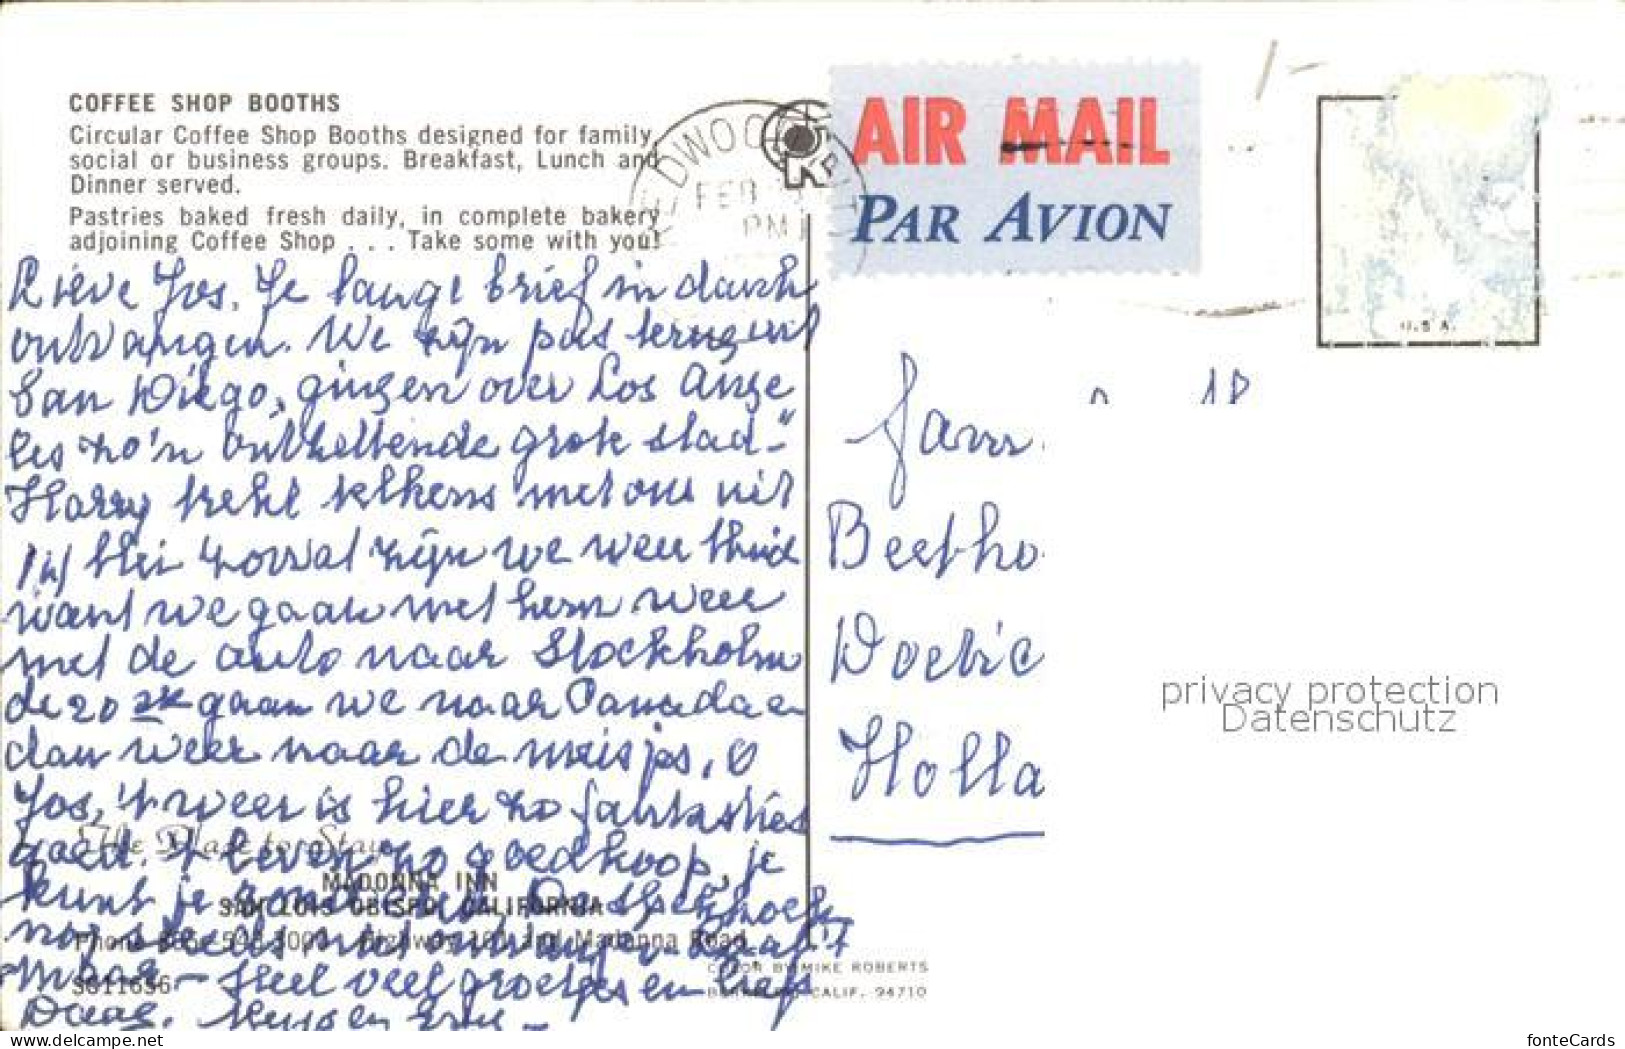 COFFEE SHOP BOOTHS
Circular Coffee Shop Booths designed for family,
social or business groups. Breakfast, Lunch and
Dinner served.
Pastries baked fresh daily, in complete bakery
adjoining Coffee Shop . . . Take some with you!
FEB
PM
AIR MAIL
PAR AVION
U.S A.
Lieve Jos. Je lange brief in dank
ontvangen. We zijn pas terug uit
San Diego, gingen over Los Ange
les zo'n ontzettende grote stad
Harry trekt telkens met ons uit
we weer thuis
want we gaan met hem weer
met de auto naar Stockholm
de 20ste gaan we naar Canada en
dan weer naar de meisjes, O
Jos, 't weer is hier zo fantasties
goed. 't Leven zo goedkoop, je
kunt je
nog steeds niet
Heel veel groetjes en liefs
Daag.
Fam.
Beetho
Doetic
Holla
The Place to Stay
MADONNA INN
SAN LUIS OBISPO, CALIFORNIA
Madonna Road
SC11656
COLOR BY MIKE ROBERTS
BERKELEY, CALIF. 94710
privacy protection
Datenschutz
delcampe.net
fonteCards